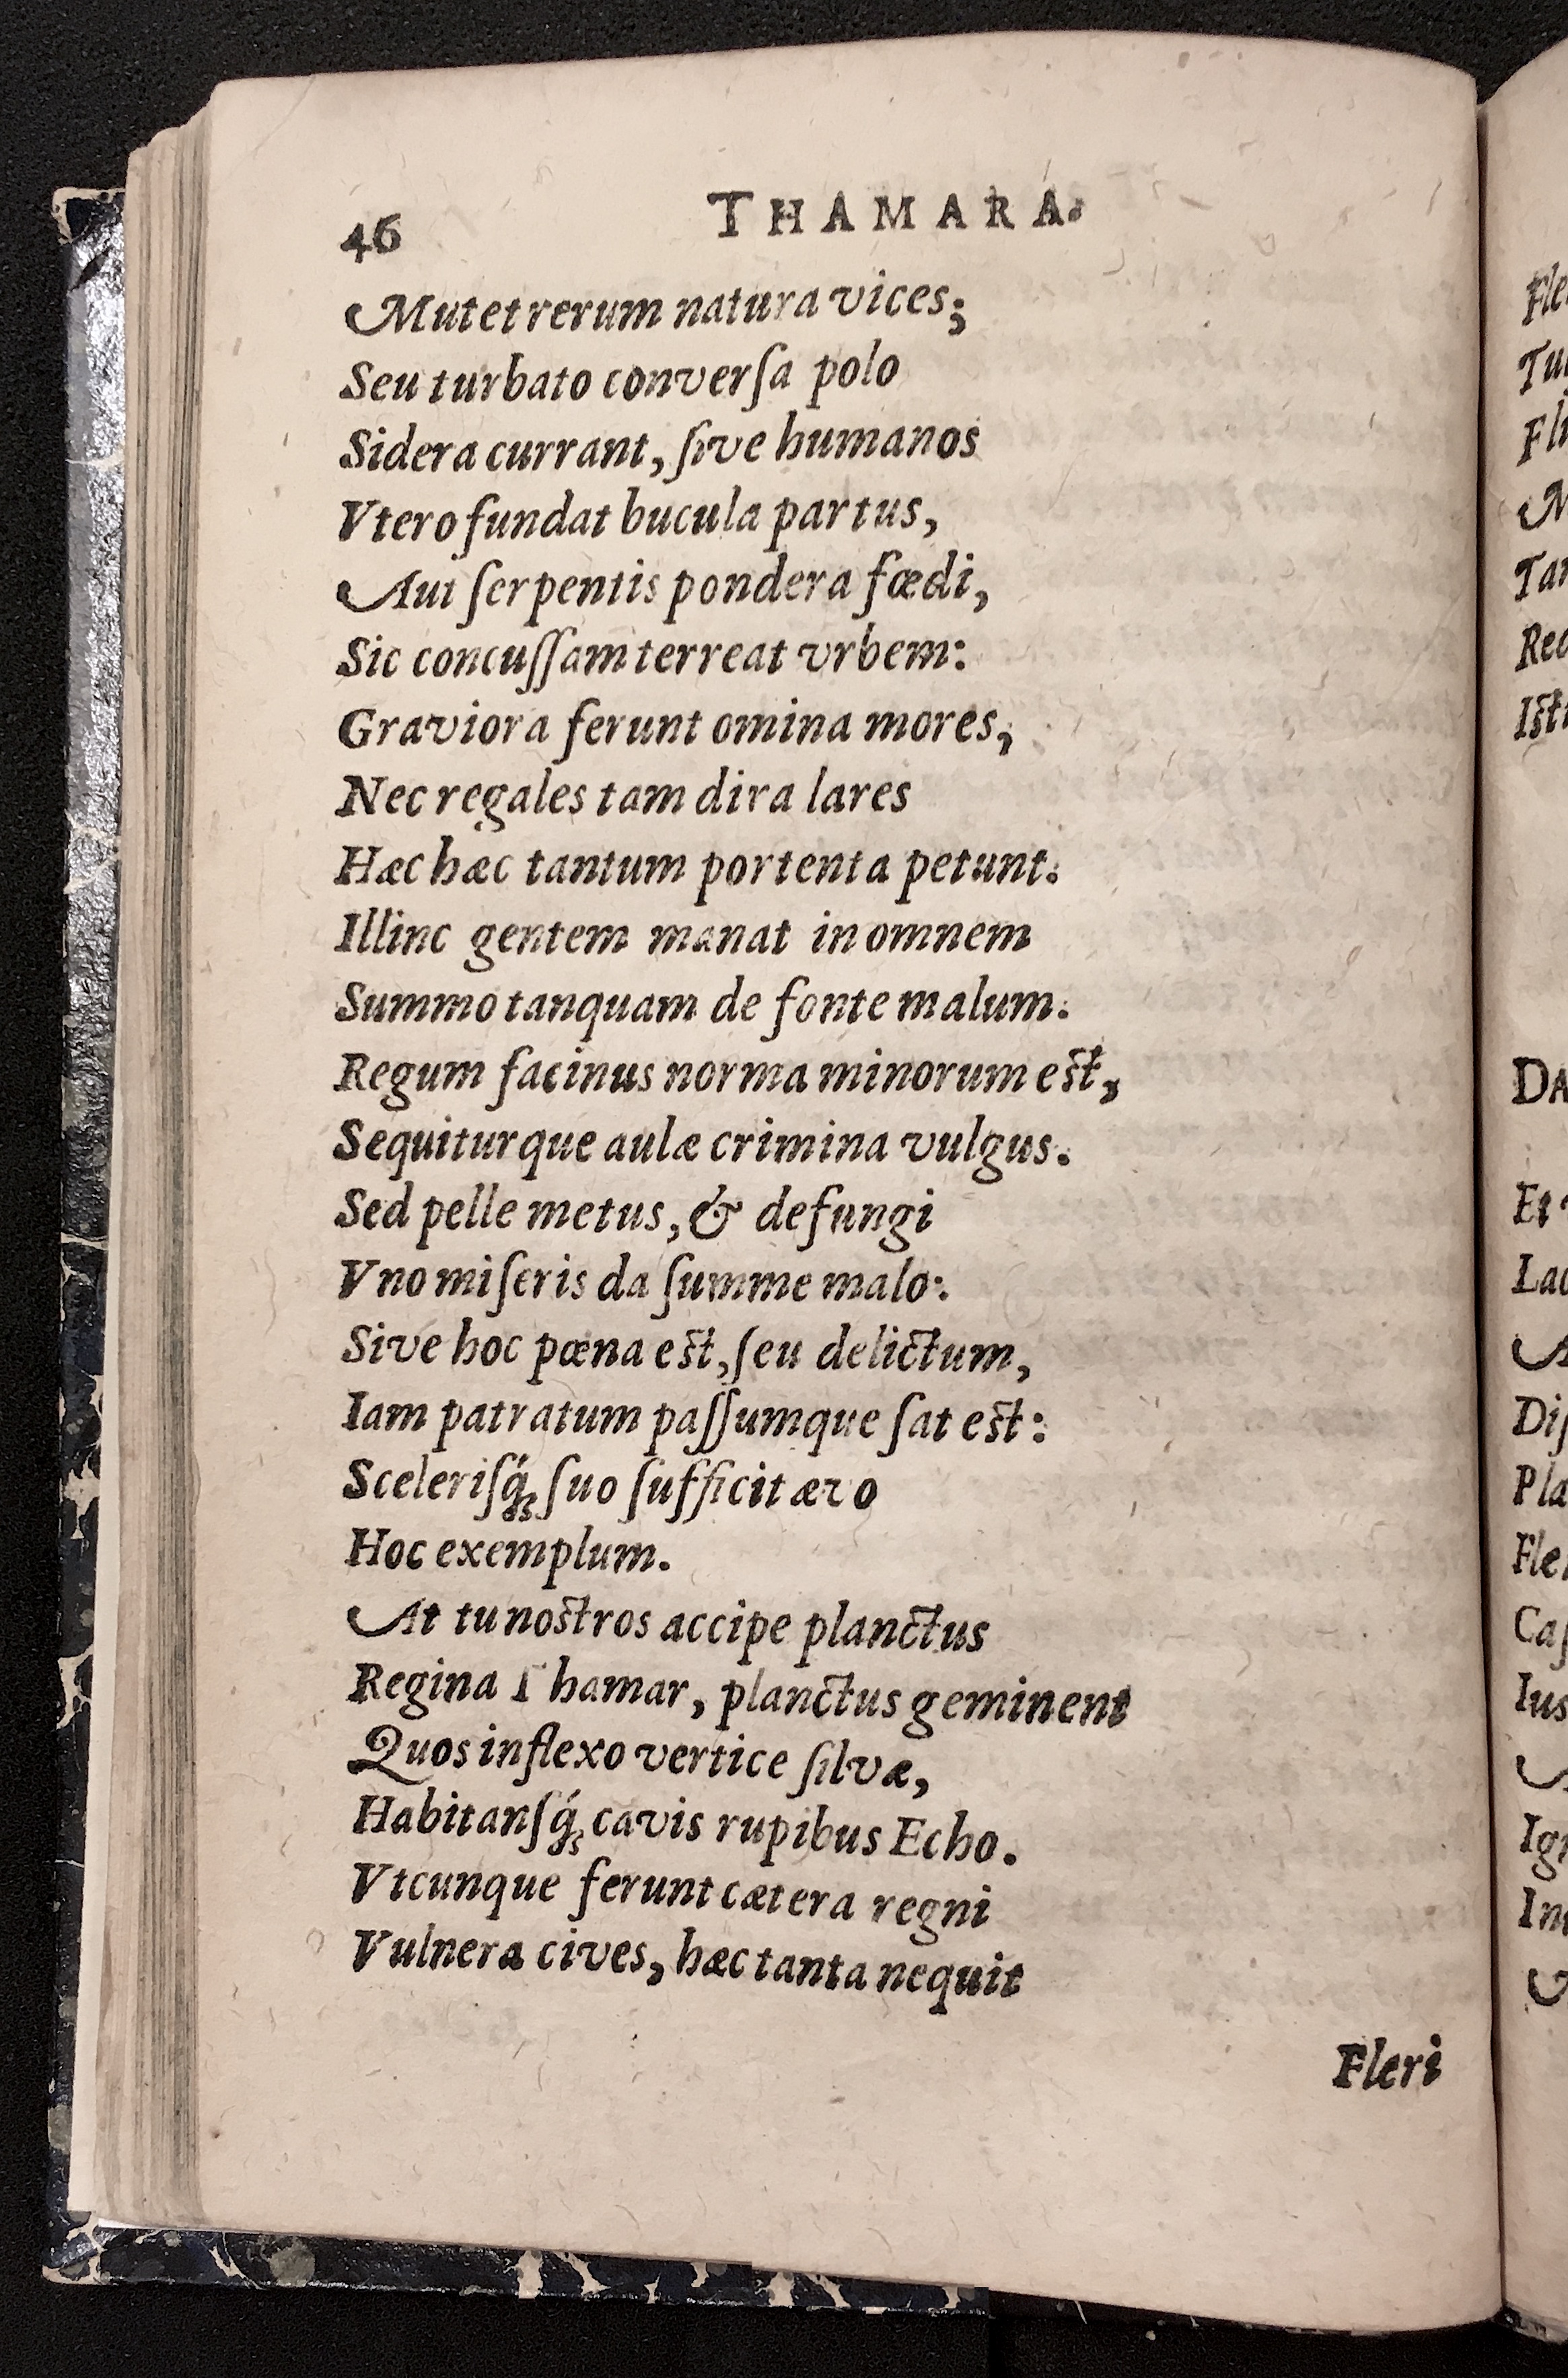 46 THAMARA.
Mutet rerum natura vices;
Seu turbato conversa polo
Sidera currant, ſive humanos
Vtero fundat bucula partus,
Aut ſerpentis pondera fœdi,
Sic concuſſam terreat vrbem:
Graviora ferunt omina mores,
Nec regales tam dira lares
Hæc hæc tantum portenta petunt.
Illinc gentem manat in omnem
Summo tanquam de fonte malum.
Regum facinus norma minorum est,
Sequiturque aulæ crimina vulgus.
Sed pelle metus, & defungi
Vno miſeris da ſumme malo:
Sive hoc pœna est, ſeu delictum,
Iam patratum paſſumque ſat est:
Sceleriſq́; ſuo ſufficit ævo
Hoc exemplum.
At tu nostros accipe planctus
Regina Thamar, planctus geminent
Quos inflexo vertice ſilvæ,
Habitanſq́; cavis rupibus Echo.
Vtcunque ferunt cætera regni
Vulnera cives, hæc tanta nequit
Fleri